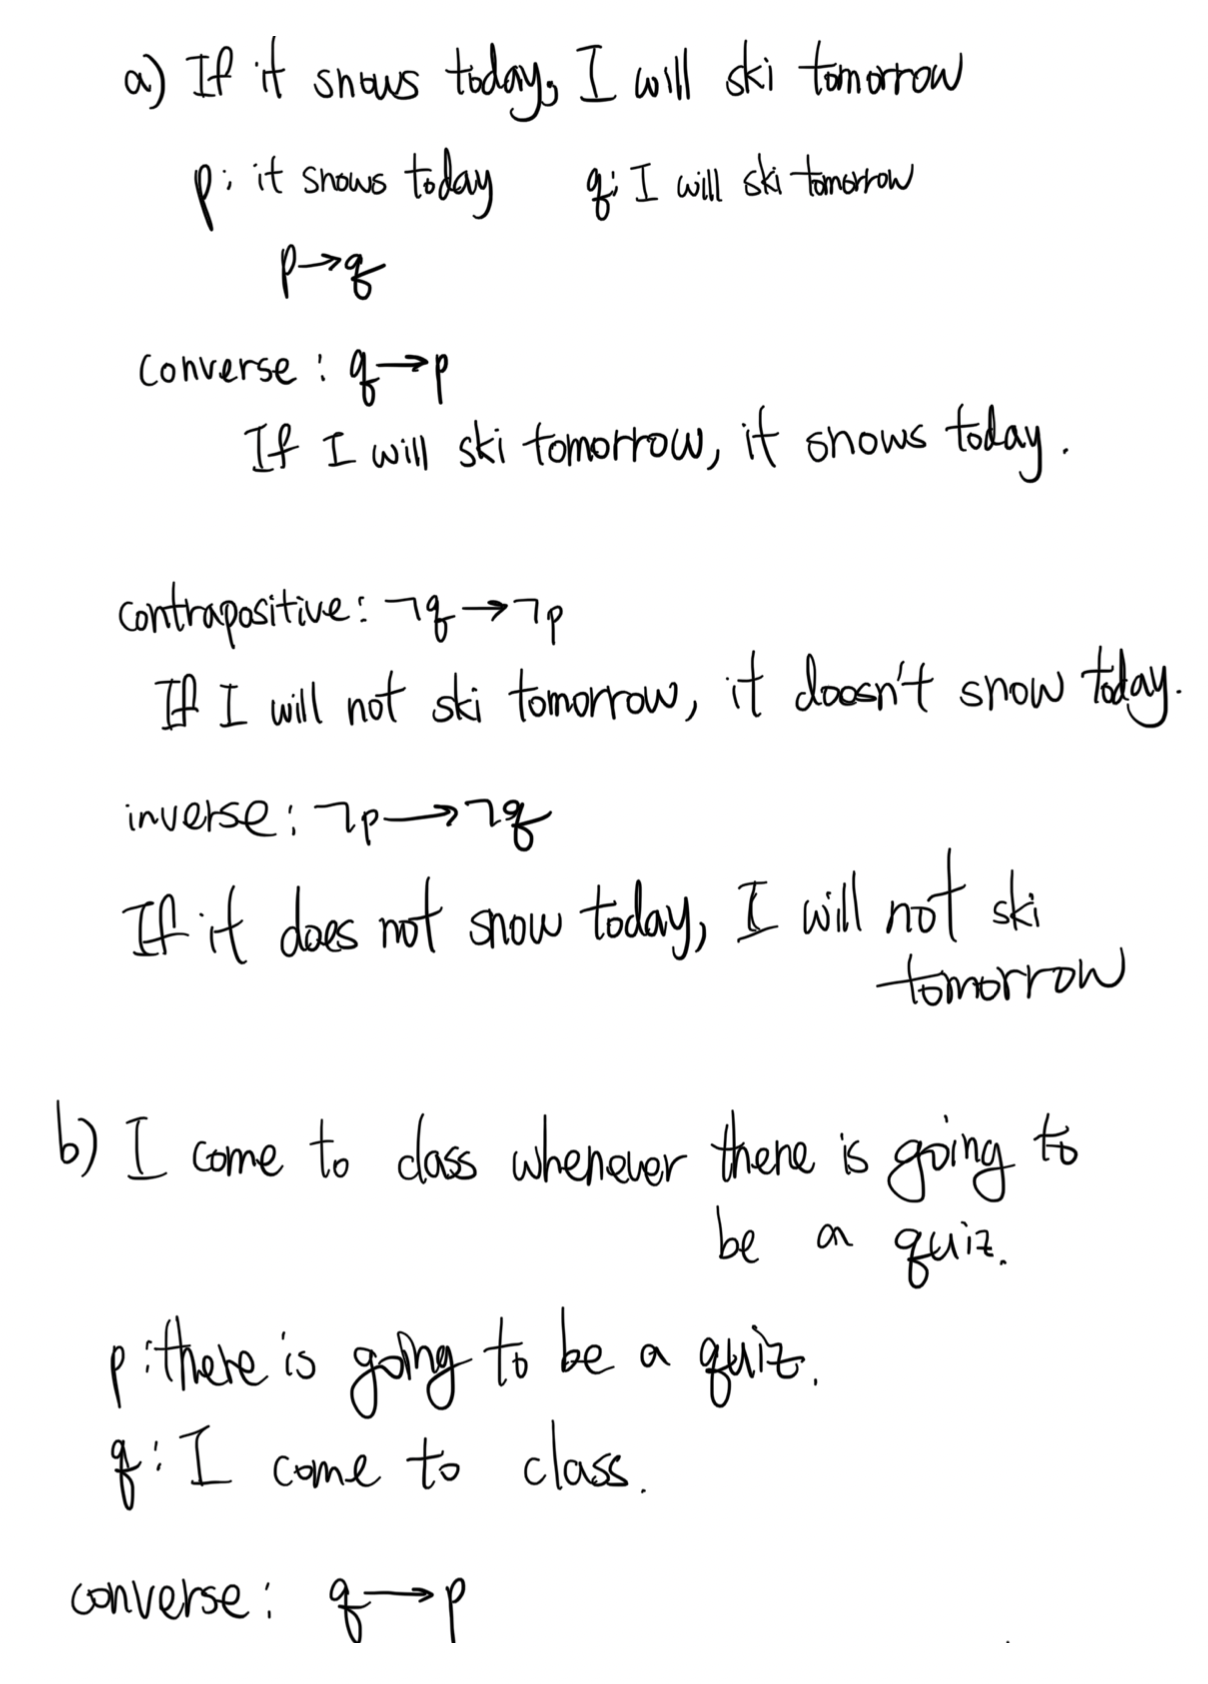 a) If it snows today, I will ski tomorrow
p: it snows today q: I will ski tomorrow
p→q
converse: q→p
If I will ski tomorrow, it snows today.
contrapositive: ¬q→¬p
If I will not ski tomorrow, it doesn't snow today.
inverse: ¬p→¬q
If it does not snow today, I will not ski
tomorrow
b) I come to class whenever there is going to
be a quiz.
p: there is going to be a quiz.
q: I come to class.
converse: q→p